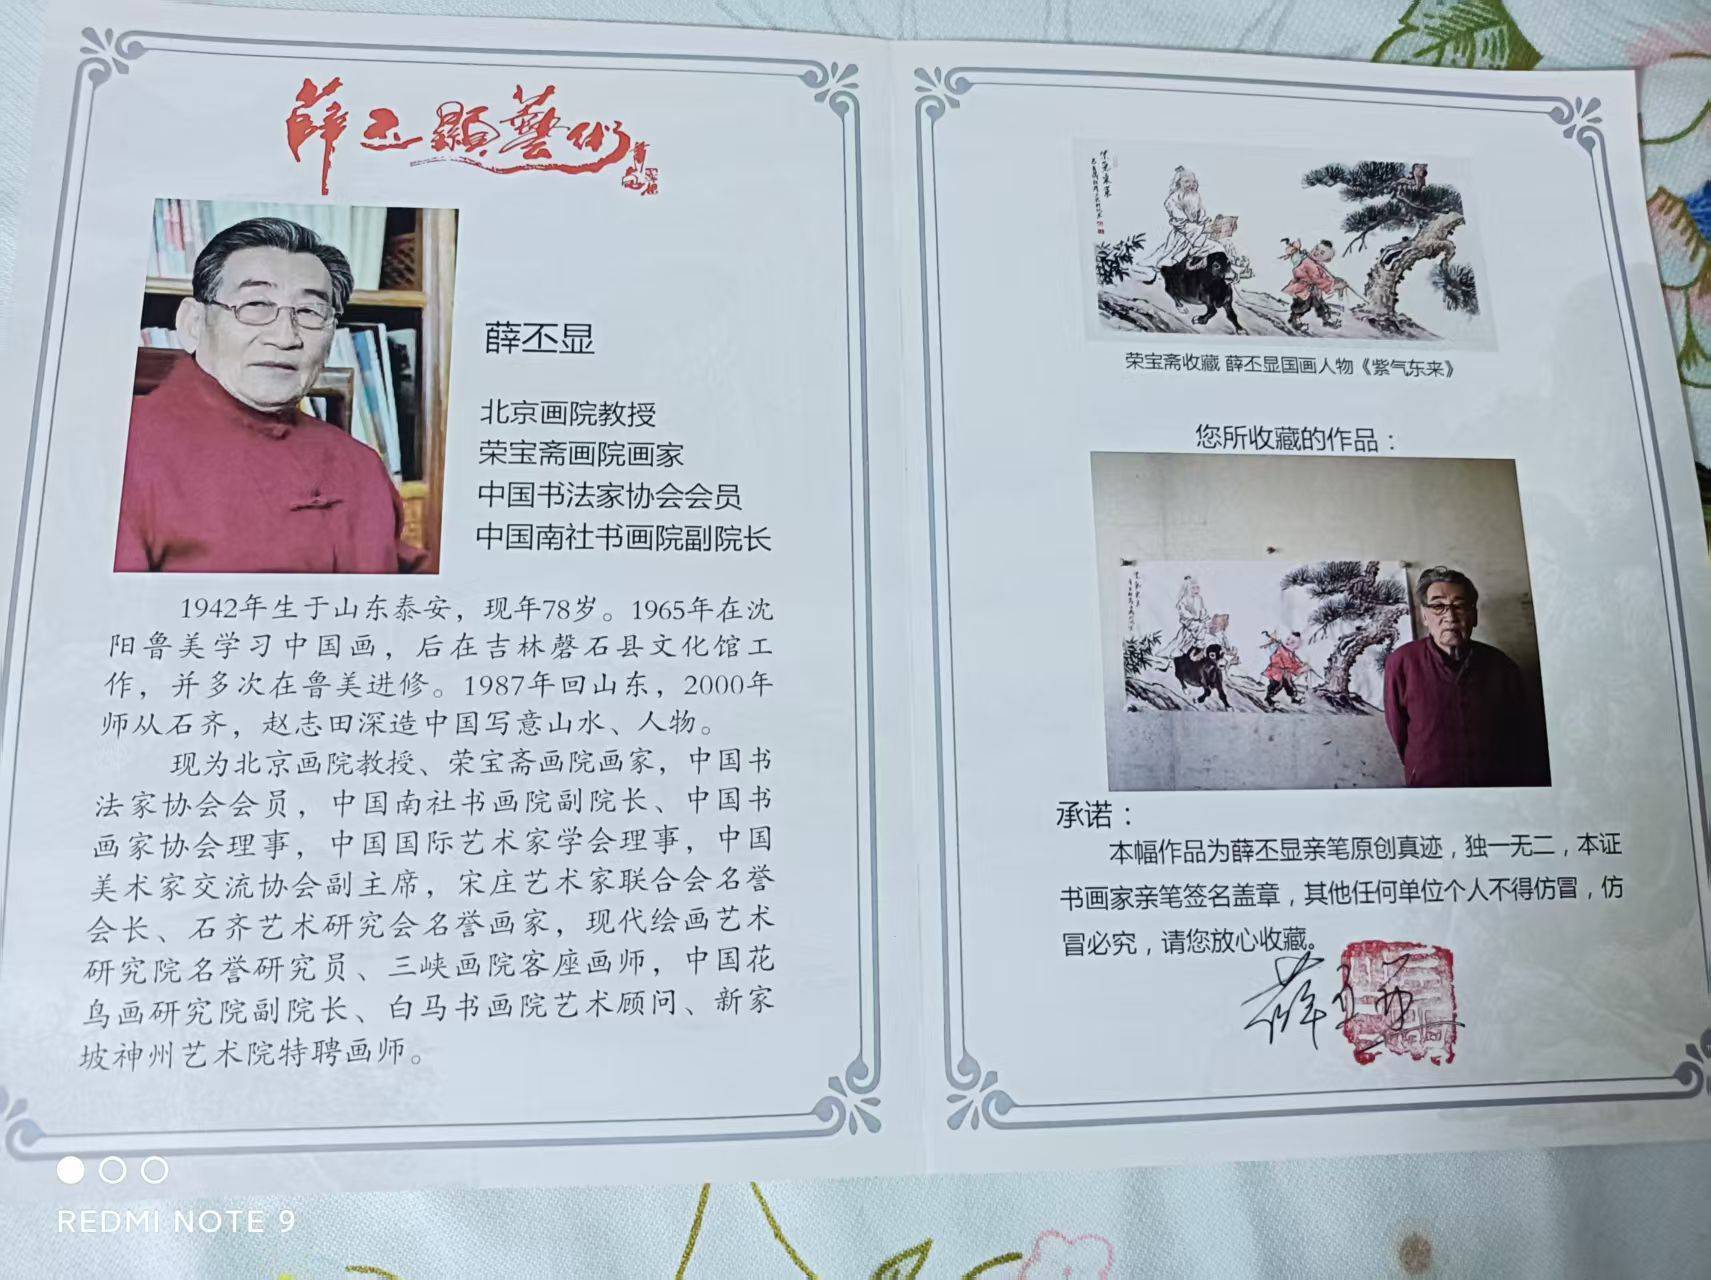 薛丕顯藝術
薛丕显
北京画院教授
荣宝斋画院画家
中国书法家协会会员
中国南社书画院副院长
1942年生于山东泰安，现年78岁。1965年在沈
阳鲁美学习中国画，后在吉林磬石县文化馆工
作，并多次在鲁美进修。1987年回山东，2000年
师从石齐，赵志田深造中国写意山水、人物。
现为北京画院教授、荣宝斋画院画家，中国书
法家协会会员，中国南社书画院副院长、中国书
画家协会理事，中国国际艺术家学会理事，中国
美术家交流协会副主席，宋庄艺术家联合会名誉
会长、石齐艺术研究会名誉画家，现代绘画艺术
研究院名誉研究员、三峡画院客座画师，中国花
鸟画研究院副院长、白马书画院艺术顾问、新家
坡神州艺术院特聘画师。
紫气东来
荣宝斋收藏 薛丕显国画人物《紫气东来》
您所收藏的作品：
承诺：
本幅作品为薛丕显亲笔原创真迹，独一无二，本证
书画家亲笔签名盖章，其他任何单位个人不得仿冒，仿
冒必究，请您放心收藏。
薛丕显
REDMI NOTE 9